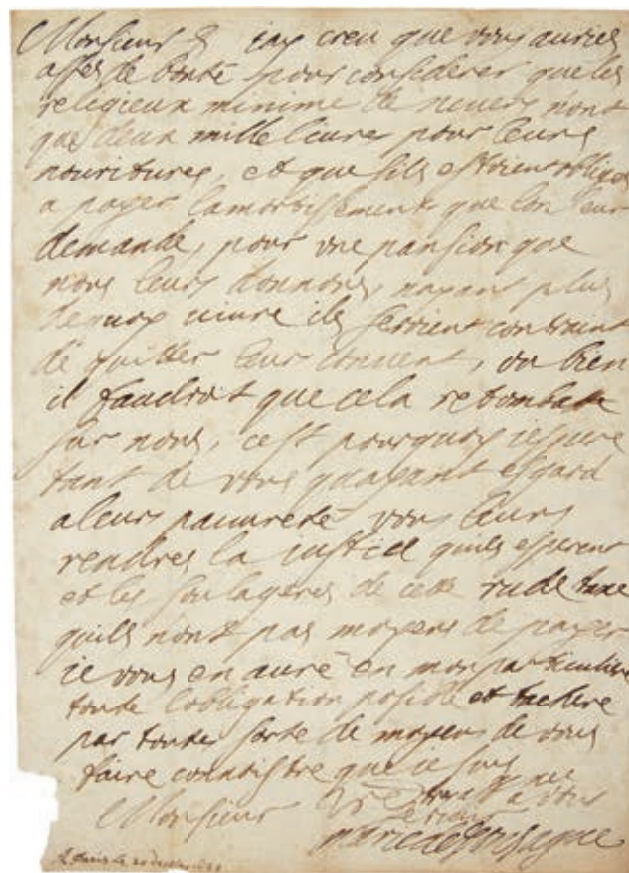 Monsieur iay creu que vous auries
asses de bonté pour considerer que les
religieux minime de nevers nont
que deux mille livre pour leurs
nouritures, et que sils estoient obliges
a payer lamortissement que lon leur
demande, pour une pansion que
nous leurs donnons, nayant plus
dequoy vivre ils seroient contraint
de quitter leur convent, ou bien
il faudroit que cela retombast
sur nous, cest pourquoy iespere
tant de vous quayant esgard
aleurs pauvreté vous leurs
rendres la iustice quils esperent
et les soulageres de cette rude taxe
quils nont pas moyens de payer
ie vous en auré en mon particulier
toute lobligation posible et tachere
par toutes sorte de moyens de vous
faire connoistre que ie suis
Monsieur a vous
marie de gonsague
A Paris le 20